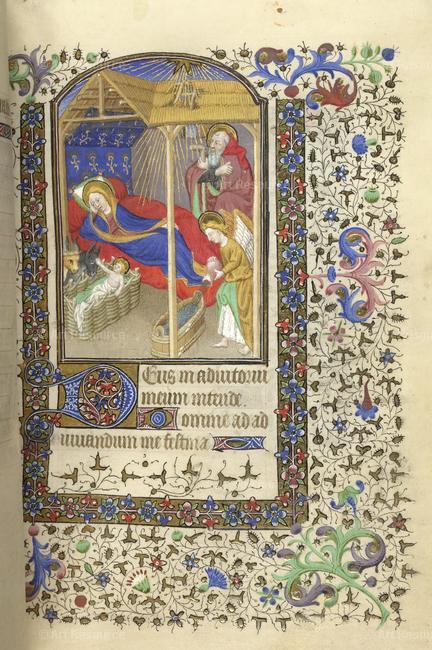 Deus in adiutoriū
meum intende.
Domine ad ad
iuuandum me festina
Art Resource